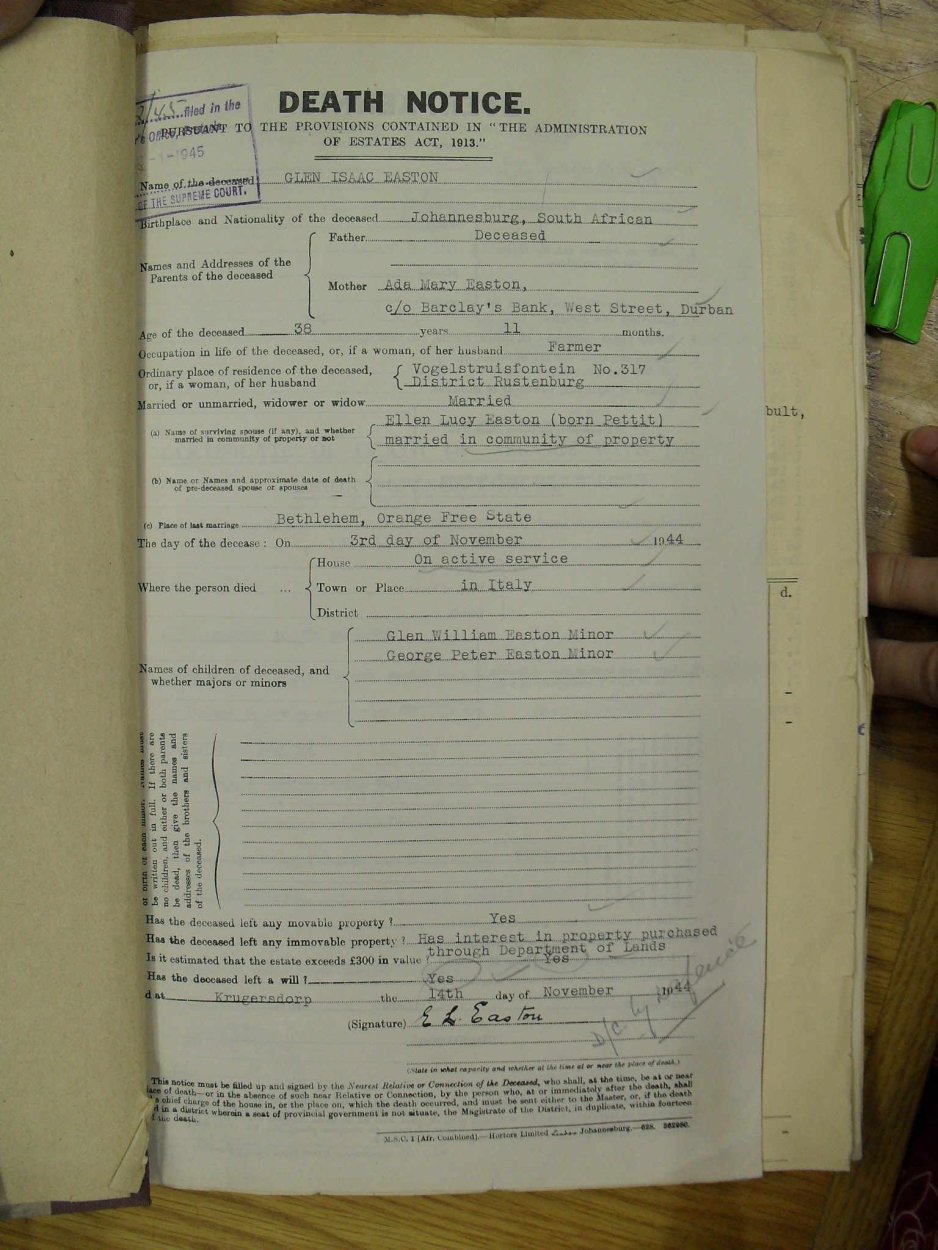 DEATH NOTICE.
/45 filed in the
PURSUANT TO THE PROVISIONS CONTAINED IN "THE ADMINISTRATION
OF ESTATES ACT, 1913."
-1-1945
Name of the deceased GLEN ISAAC EASTON
OF THE SUPREME COURT.
Birthplace and Nationality of the deceased Johannesburg, South African
Father Deceased
Names and Addresses of the
Parents of the deceased
Mother Ada Mary Easton,
c/o Barclay's Bank, West Street, Durban
Age of the deceased 38 years 11 months.
Occupation in life of the deceased, or, if a woman, of her husband Farmer
Ordinary place of residence of the deceased, Vogelstruisfontein No.317
or, if a woman, of her husband District Rustenburg
Married or unmarried, widower or widow Married
Ellen Lucy Easton (born Pettit)
(a) Name of surviving spouse (if any), and whether
married in community of property or not married in community of property
(b) Name or Names and approximate date of death
of pre-deceased spouse or spouses
(c) Place of last marriage Bethlehem, Orange Free State
The day of the decease : On 3rd day of November 1944
House On active service
Where the person died ... Town or Place in Italy
District
Glen William Easton Minor
George Peter Easton Minor
Names of children of deceased, and
whether majors or minors
be written out in full. If there are
no children, and either or both parents
be dead, then give the names and
addresses of the brothers and sisters
of the deceased.
Has the deceased left any movable property ? Yes
Has the deceased left any immovable property ? Has interest in property purchased
through Department of Lands
Is it estimated that the estate exceeds £300 in value ? Yes
Has the deceased left a will ? Yes
d at Krugersdorp the 14th day of November 1944
(Signature) E L Easton
D/C by
(State in what capacity and whether at the time at or near the place of death.)
This notice must be filled up and signed by the Nearest Relative or Connection of the Deceased, who shall, at the time, be at or near
lace of death—or in the absence of such near Relative or Connection, by the person who, at or immediately after the death, shall
chief charge of the house in, or the place on, which the death occurred, and must be sent either to the Master, or, if the death
d in a district wherein a seat of provincial government is not situate, the Magistrate of the District, in duplicate, within fourteen
the death.
M.S.C. 1 [Afr. Combined].—Hortors Limited Johannesburg.—628.
bult,
d.